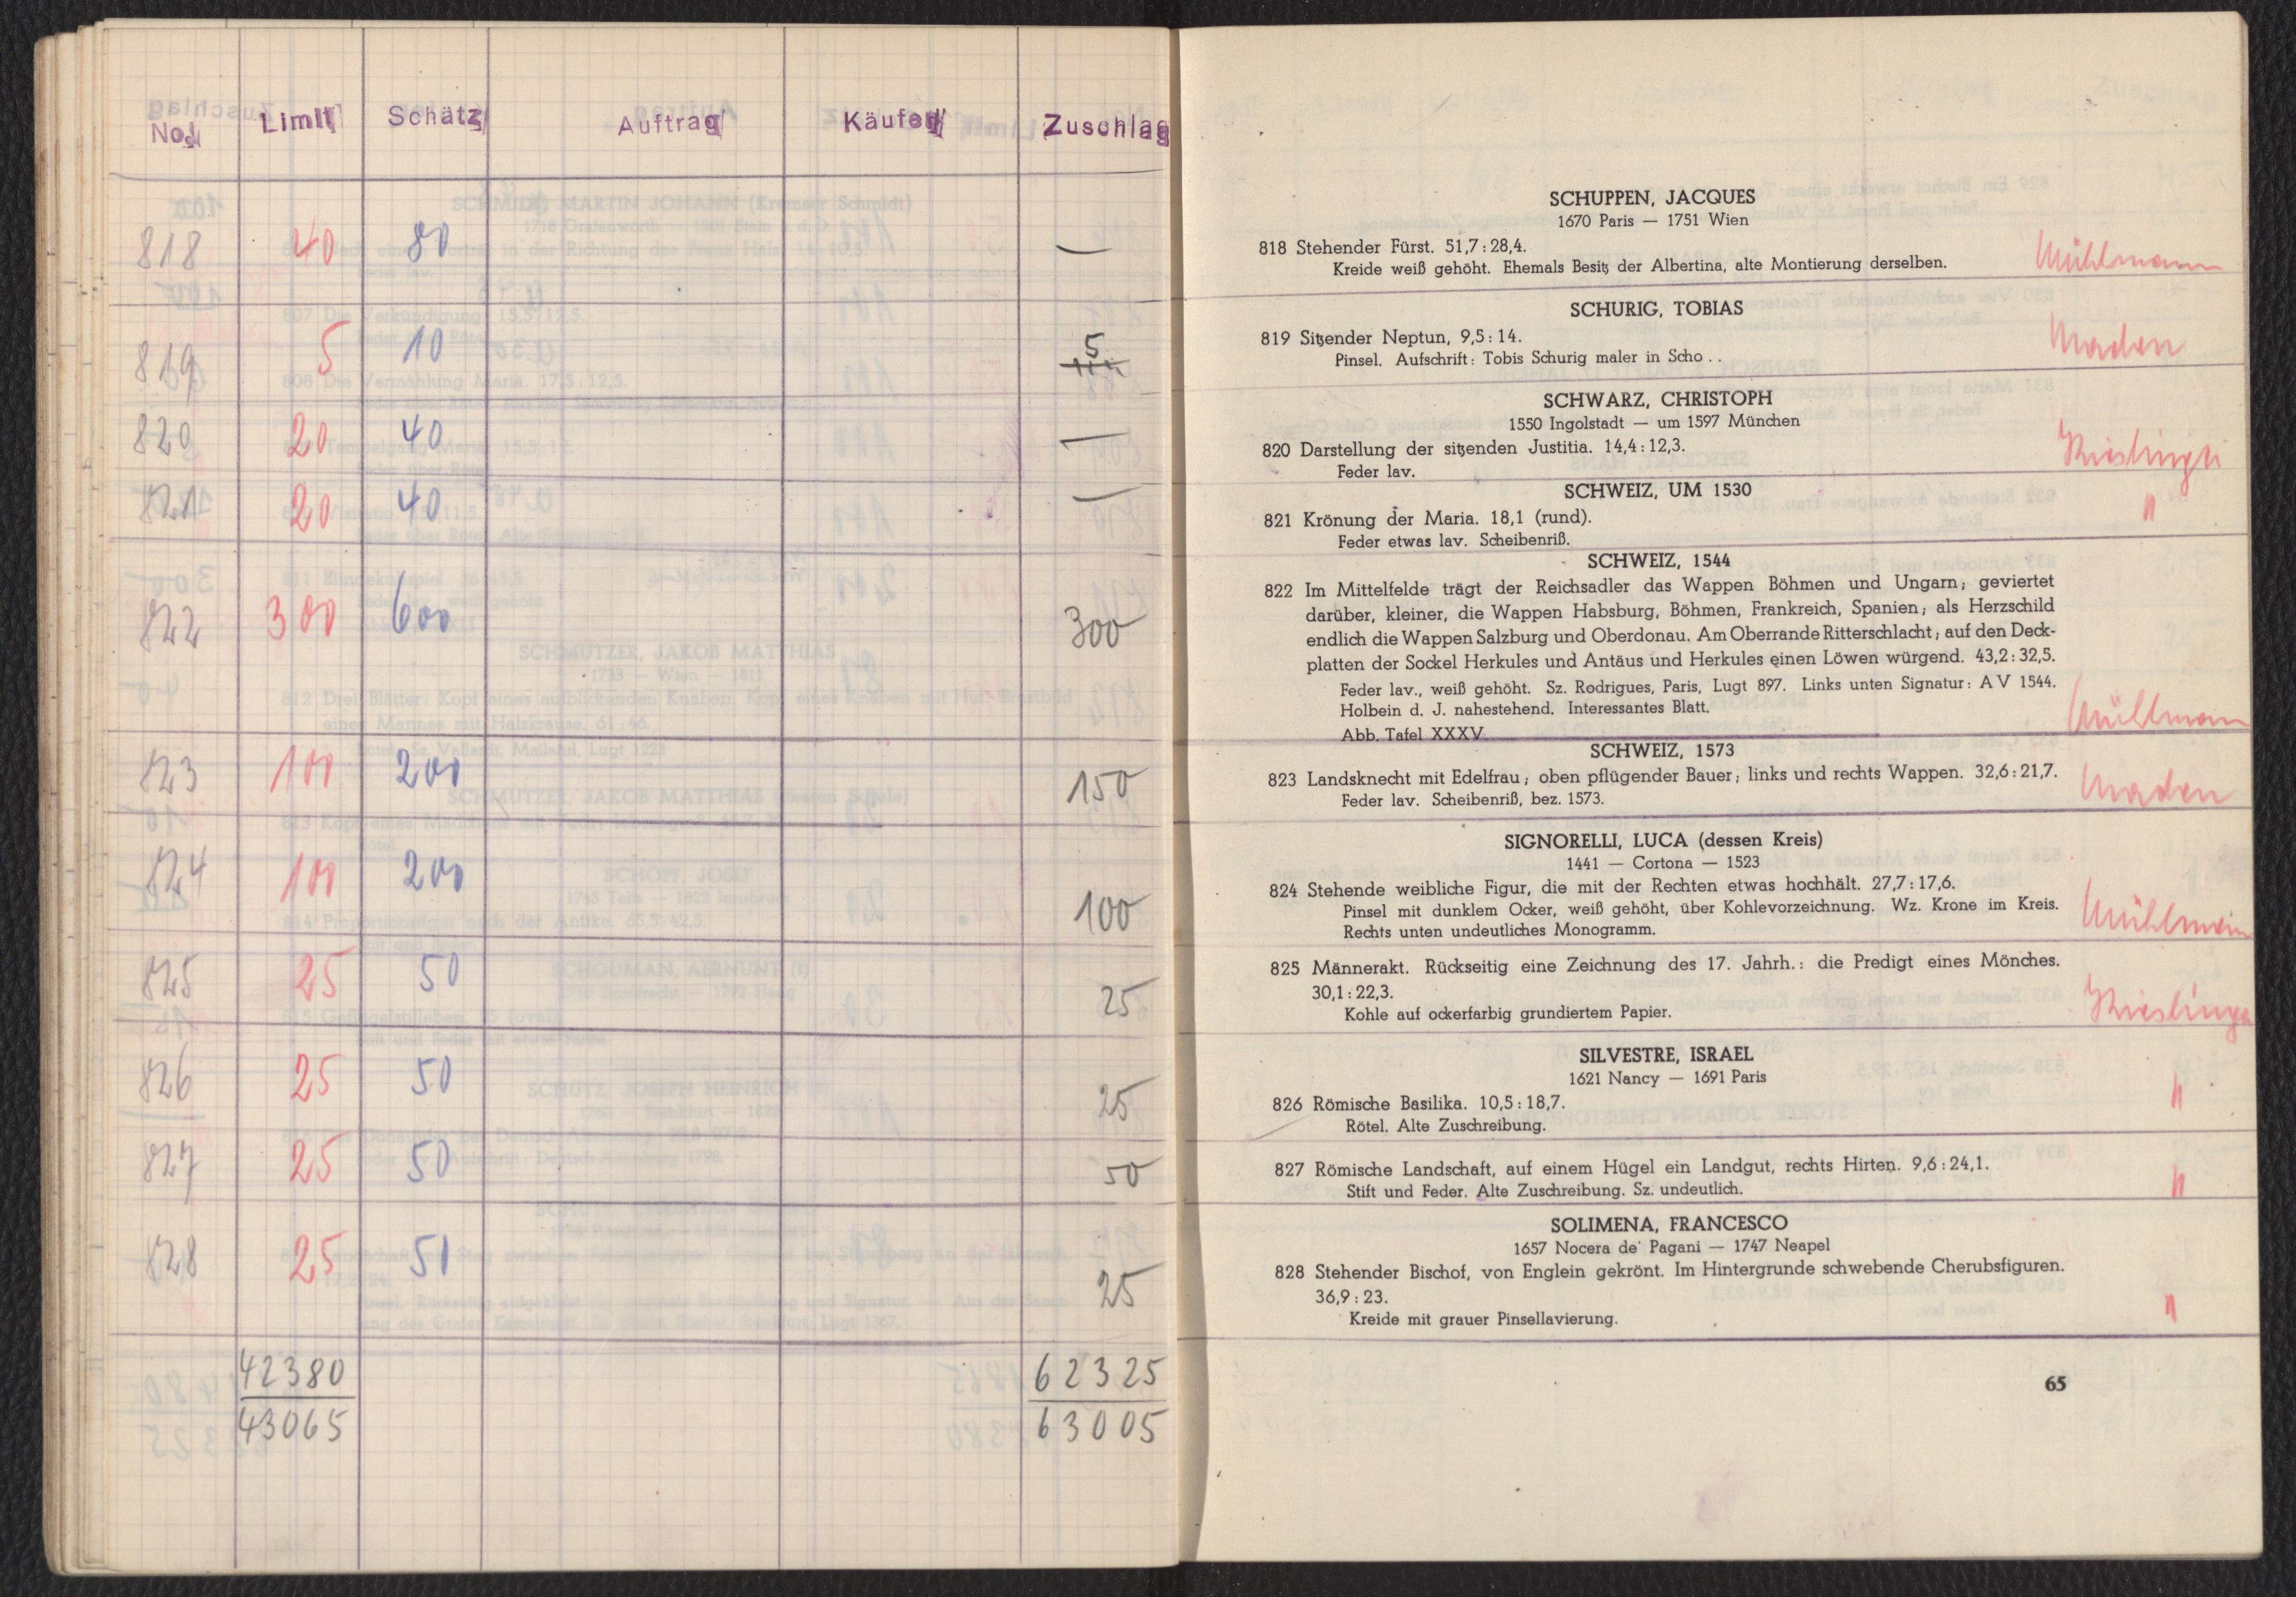 No. Limit Schätz Auftrag Käufer Zuschlag
818 40 80 —
819 5 10 5
820 20 40 —
821 20 40 —
822 300 600 300
823 100 200 150
824 100 200 100
825 25 50 25
826 25 50 25
827 25 50 50
828 25 50 25
42380 62325
43065 63005
SCHUPPEN, JACQUES
1670 Paris — 1751 Wien
818 Stehender Fürst. 51,7 : 28,4.
Kreide weiß gehöht. Ehemals Besitz der Albertina, alte Montierung derselben.
Mühlmann
SCHURIG, TOBIAS
819 Sitzender Neptun, 9,5 : 14.
Pinsel. Aufschrift: Tobis Schurig maler in Scho . .
SCHWARZ, CHRISTOPH
1550 Ingolstadt — um 1597 München
820 Darstellung der sitzenden Justitia. 14,4 : 12,3.
Feder lav.
SCHWEIZ, UM 1530
821 Krönung der Maria. 18,1 (rund).
"
Feder etwas lav. Scheibenriß.
SCHWEIZ, 1544
822 Im Mittelfelde trägt der Reichsadler das Wappen Böhmen und Ungarn; geviertet
darüber, kleiner, die Wappen Habsburg, Böhmen, Frankreich, Spanien; als Herzschild
endlich die Wappen Salzburg und Oberdonau. Am Oberrande Ritterschlacht; auf den Deck-
platten der Sockel Herkules und Antäus und Herkules einen Löwen würgend. 43,2 : 32,5.
Feder lav., weiß gehöht. Sz. Rodrigues, Paris, Lugt 897. Links unten Signatur: A V 1544.
Holbein d. J. nahestehend. Interessantes Blatt.
Mühlmann
Abb. Tafel XXXV
SCHWEIZ, 1573
823 Landsknecht mit Edelfrau; oben pflügender Bauer; links und rechts Wappen. 32,6 : 21,7.
Feder lav. Scheibenriß, bez. 1573.
SIGNORELLI, LUCA (dessen Kreis)
1441 — Cortona — 1523
824 Stehende weibliche Figur, die mit der Rechten etwas hochhält. 27,7 : 17,6.
Pinsel mit dunklem Ocker, weiß gehöht, über Kohlevorzeichnung. Wz. Krone im Kreis.
Mühlmann
Rechts unten undeutliches Monogramm.
825 Männerakt. Rückseitig eine Zeichnung des 17. Jahrh.: die Predigt eines Mönches.
30,1 : 22,3.
Kohle auf ockerfarbig grundiertem Papier.
SILVESTRE, ISRAEL
1621 Nancy — 1691 Paris
826 Römische Basilika. 10,5 : 18,7.
"
Rötel. Alte Zuschreibung.
827 Römische Landschaft, auf einem Hügel ein Landgut, rechts Hirten. 9,6 : 24,1.
"
Stift und Feder. Alte Zuschreibung. Sz. undeutlich.
SOLIMENA, FRANCESCO
1657 Nocera de' Pagani — 1747 Neapel
828 Stehender Bischof, von Englein gekrönt. Im Hintergrunde schwebende Cherubsfiguren.
36,9 : 23.
"
Kreide mit grauer Pinsellavierung.
65